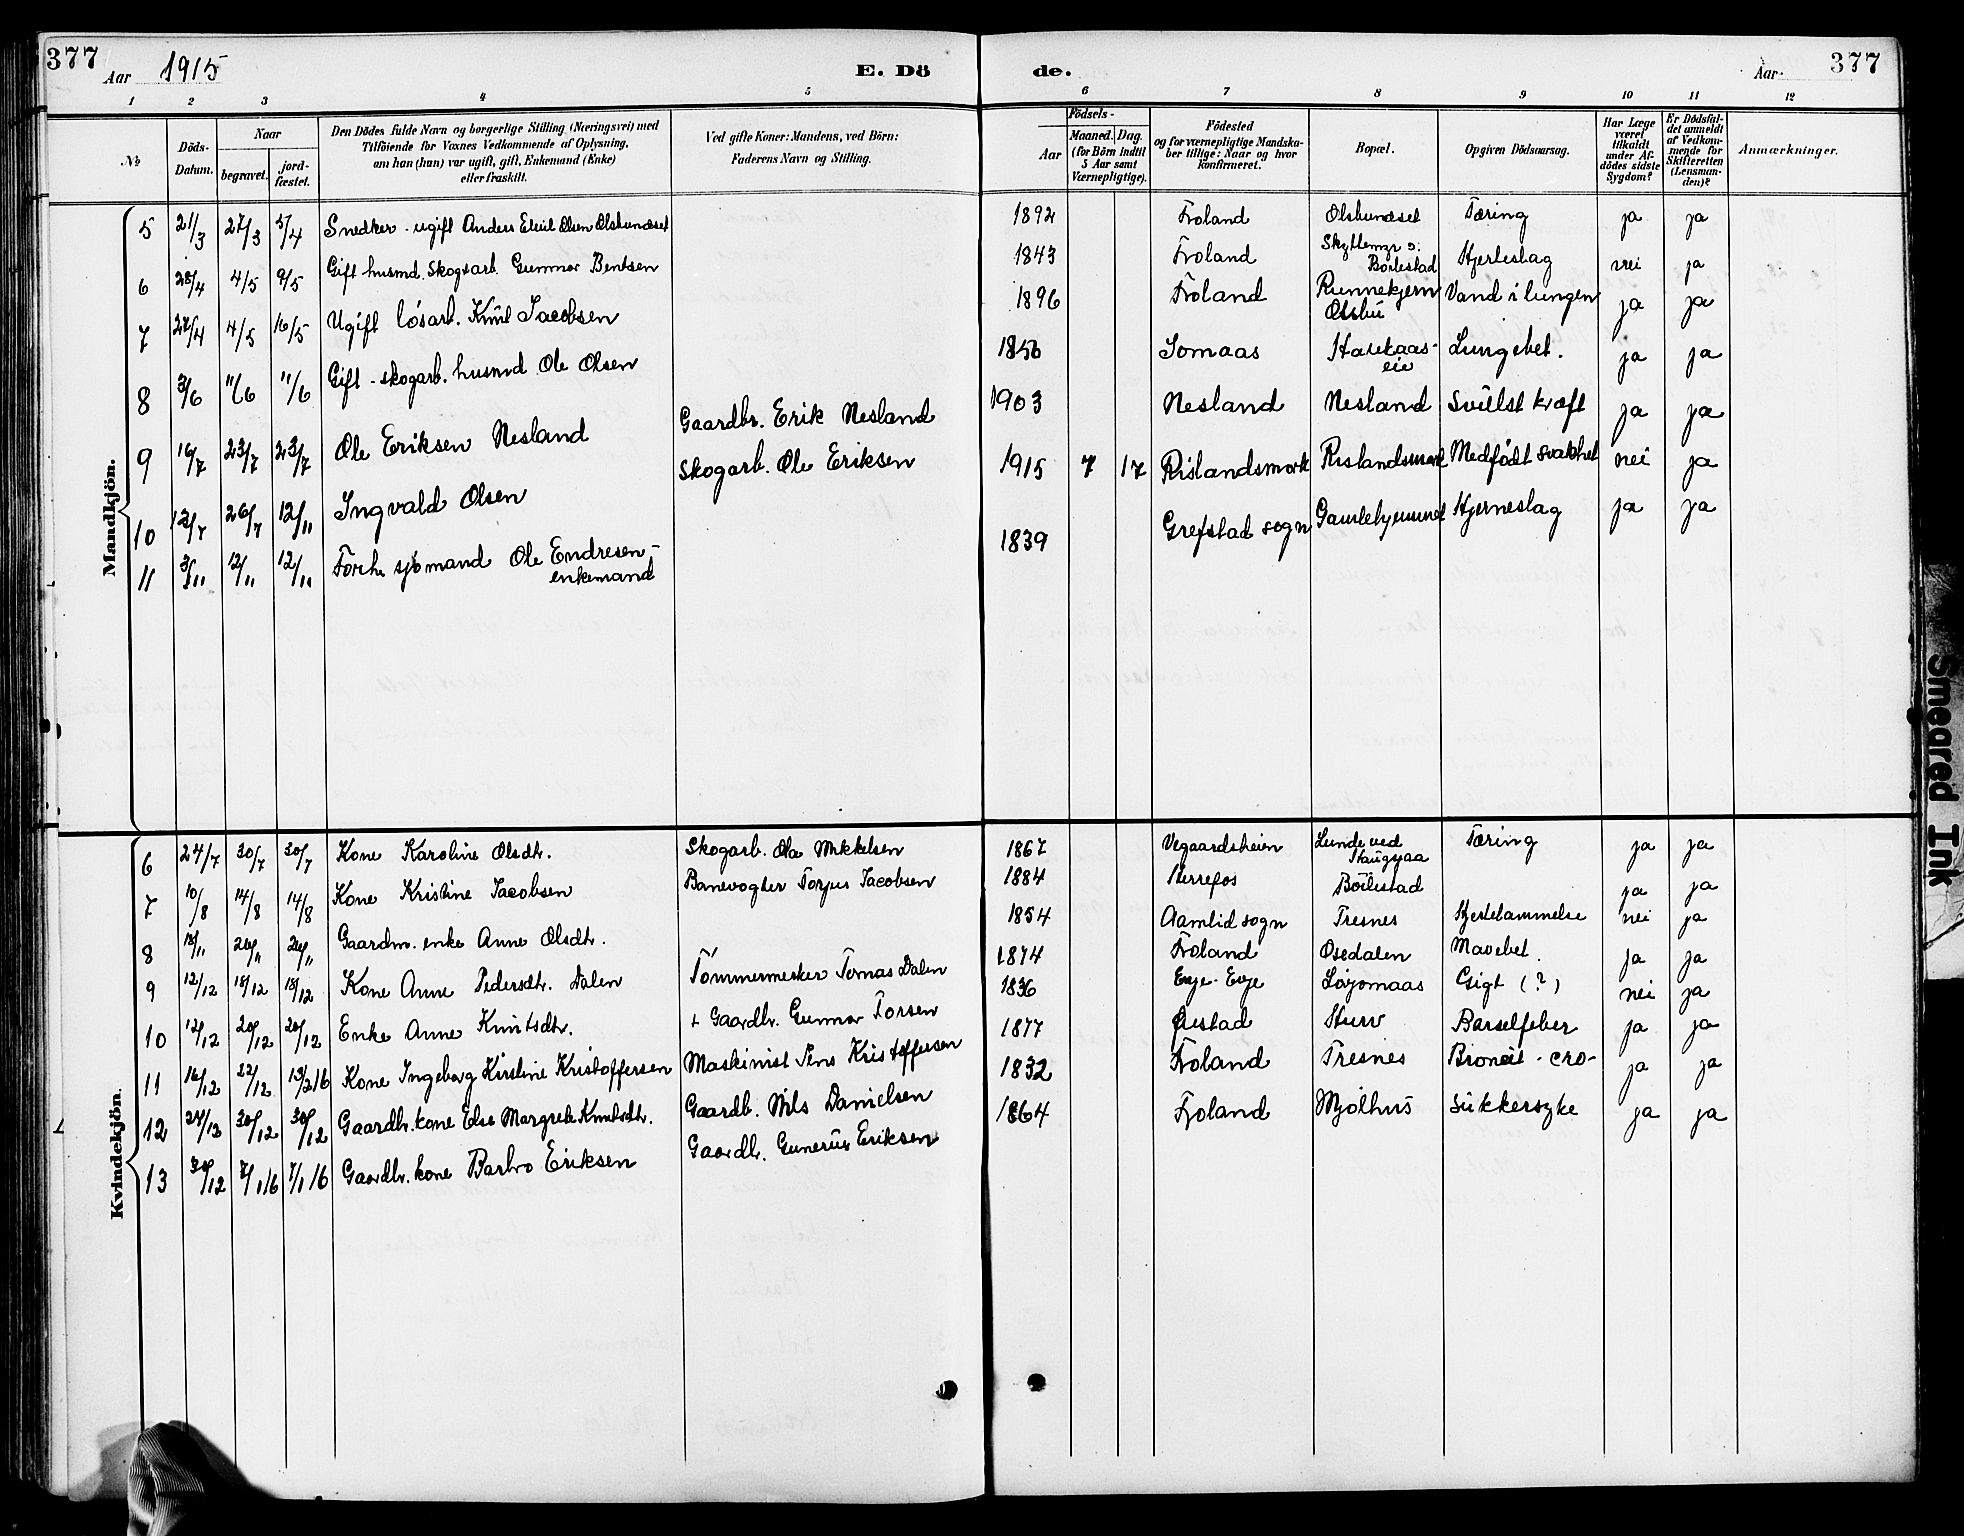 377 Aar 1915 E. Dö
de. Aar 377
1 2 3 4 5 6 7 8 9 10 11 12
No
Döds-Datum.
Naar
begravet.
jord-fæstet.
Den Dödes fulde Navn og borgerlige Stilling (Næringsvei) med
Tilföiende for Voxnes Vedkommende af Oplysning,
om han (hun) var ugift, gift, Enkemand (Enke)
eller fraskilt.
Ved gifte Koner: Mandens, ved Börn:
Faderens Navn og Stilling.
Födsels-
Aar
Maaned. Dag.
(for Börn indtil
5 Aar samt
Værnepligtige).
Födested
og for værnepligtige Mandska-
ber tillige: Naar og hvor
konfirmeret.
Bopæl.
Opgiven Dödsaarsag.
Har Læge
været
tilkaldt
under Af-
dödes sidste
Sygdom?
Er Dödsfal-
det anmeldt
af Vedkom-
mende for
Skifteretten
(Lensman-
den)?
Anmærkninger.
Mandkjön.
5 21/3 27/3 5/4 Snedker - ugift Anders Olsen 1892 Froland Tæring ja ja
6 28/4 4/5 9/5 Gift husmd. Skogsarb. Gunnar Bentsen 1843 Froland Bøilestad Hjerteslag nei ja
7 4/5 16/5 Ugift løsarb. Knut Jacobsen 1896 Froland Vand i lungen ja ja
8 3/6 11/6 11/6 Gift - skogarb. husmd Ole Olsen 1856 Tomaas eie Lungebet. ja ja
9 16/7 23/7 23/7 Ole Eriksen Nesland Gaardbr. Erik Nesland 1903 Nesland Nesland Svulst kræft ja ja
10 26/7 12/11 Ingvald Olsen Skogarb. Ole Eriksen 1915 7 17 Rislandsmork Medfødt svakhet nei ja
11 3/11 12/11 12/11 Forh. sjømand Ole Endresen - 1839 Grefstad sogn Gamlehjemmet Hjerneslag ja ja
enkemand
Kvindekjön.
6 24/7 30/7 30/7 Kone Karoline Olsdtr. Skogarb. Ole Mikkelsen 1867 Vegaardsheien Lunde ved Tæring ja ja
7 10/8 14/8 14/8 Kone Kristine Jacobsen Banevogter Torjus Jacobsen 1884 Herrefos Bøilestad ja ja
8 18/11 26/11 26/11 Gaardm. enke Anne Olsdtr. 1854 Aamlid sogn Tresnes Hjertelammelse nei ja
9 12/12 18/12 18/12 Kone Anne Pedersdtr. Dalen Tømmermerker Tomas Dalen 1874 Froland Osedalen Mavebet. ja ja
10 12/12 20/12 20/12 Enke Anne Knutsdtr. + Gaardbr. Gunnar Torsen 1836 Evje - Evje Gigt (?) nei ja
11 16/12 22/12 Kone Ingeborg Kirstine Kristoffersen Maskinist Jens Kristoffersen 1877 Øiestad Hurv Barselfeber ja ja
12 30/12 30/12 Gaardbr. kone Else Margrete Knutsdtr. Gaardb. Nils Danielsen 1832 Froland Tresnes ja ja
13 30/12 7/1 16 7/1 16 Gaardbr. kone Barbro Eriksen Gaardb. Gunerius Eriksen 1864 Froland Mjølhus Sukkersyke ja ja
Smeared Ink